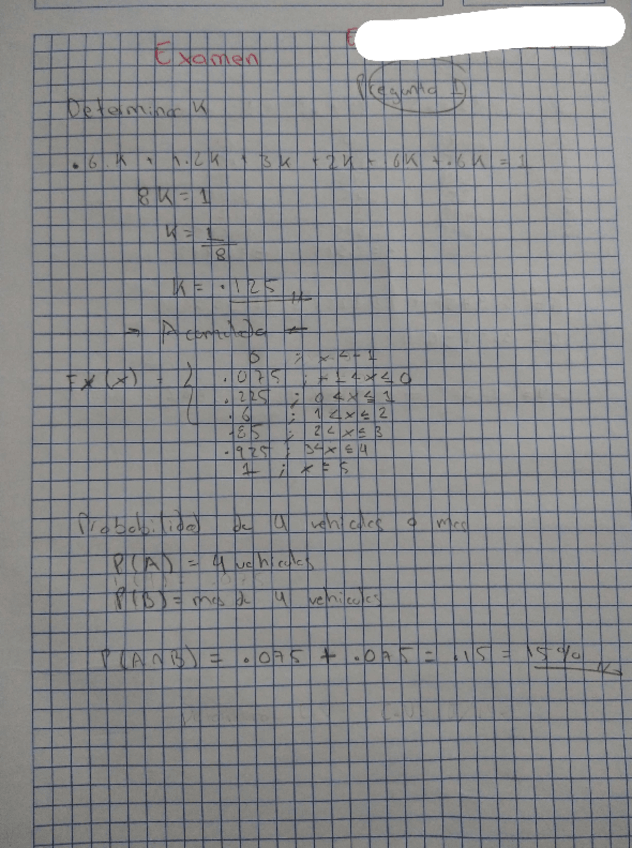 Examen
Pregunta 1
Determinar K
.6K + 1.2K + 3K + 2K + .6K + .6K = 1
8K = 1
K = 1/8
K = .125
→ Acomulada ←
Fx(x) = { 0 ; x < -1
.075 ; -1 < x ≤ 0
.225 ; 0 < x ≤ 1
.6 ; 1 < x ≤ 2
.85 ; 2 < x ≤ 3
.925 ; 3 < x ≤ 4
1 ; x = 5
Probabilidad de 4 vehiculos o mas
P(A) = 4 vehiculos
P(B) = mas de 4 vehiculos
P(A∩B) = .075 + .075 = .15 = 15%